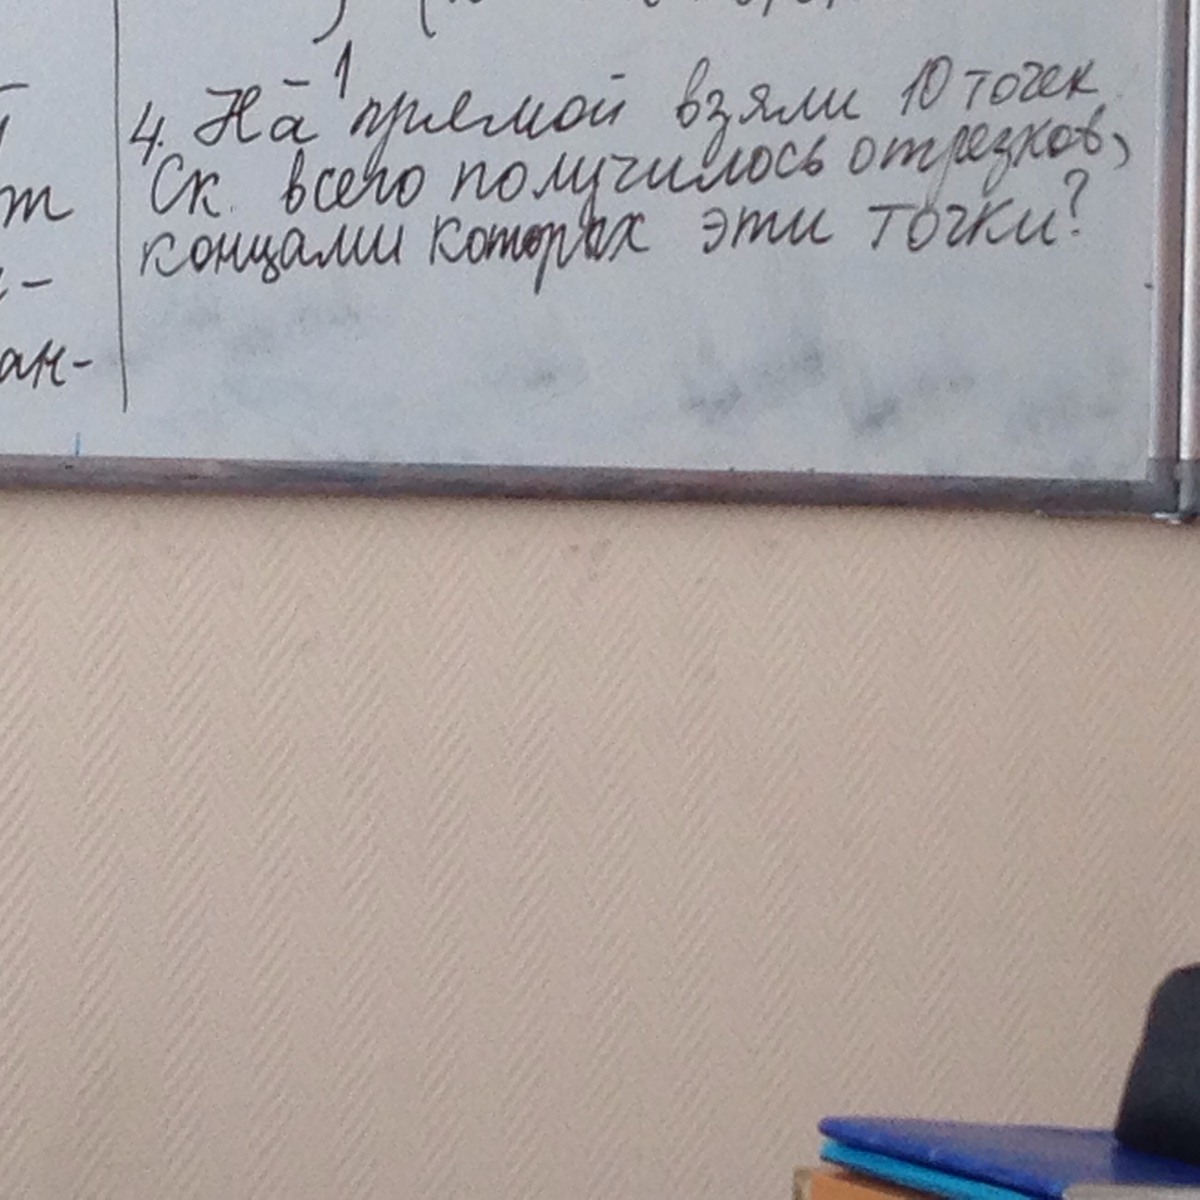 4. На 1 прямой взяли 10 точек.
Ск. всего получилось отрезков,
концами которых эти точки?
т
ан-